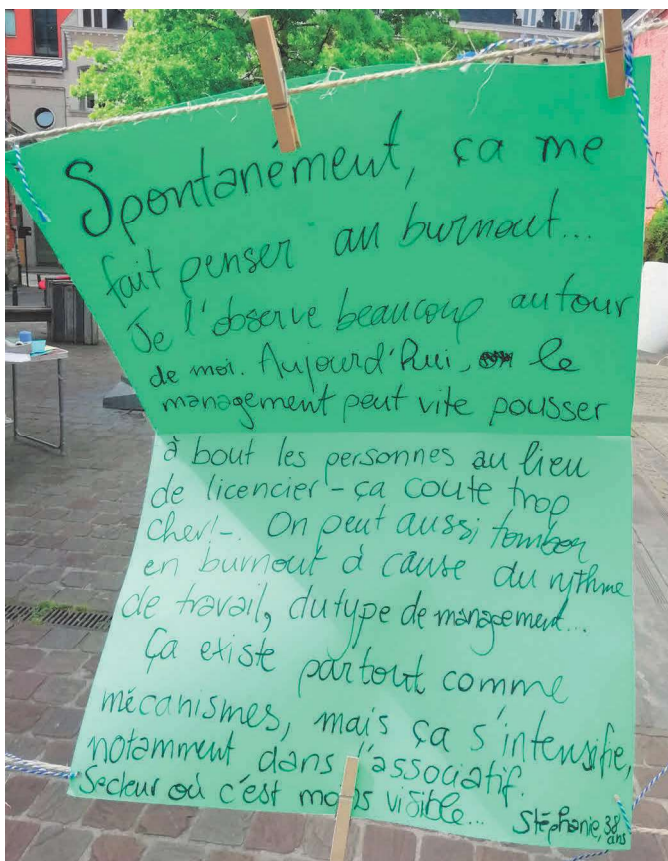 Spontanément, ça me
fait penser au burnout...
Je l'observe beaucoup autour
de moi. Aujourd'hui, le
management peut vite pousser
à bout les personnes au lieu
de licencier - ça coute trop
cher! -. On peut aussi tomber
en burnout à cause du rythme
de travail, du type de management...
Ça existe partout comme
mécanismes, mais ça s'intensifie,
notamment dans l'associatif.
Secteur où c'est moins visible...
Stéphanie, 38
ans